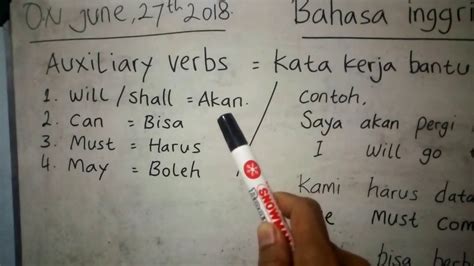 ON June, 27th 2018. Bahasa inggri
Auxiliary verbs = Kata kerja bantu
1. Will / Shall = Akan.
2. Can = Bisa
3. Must = Harus
4. May = Boleh
Contoh,
Saya akan pergi
I Will go
Kami harus data
Must Com
bisa
SNOWMAN